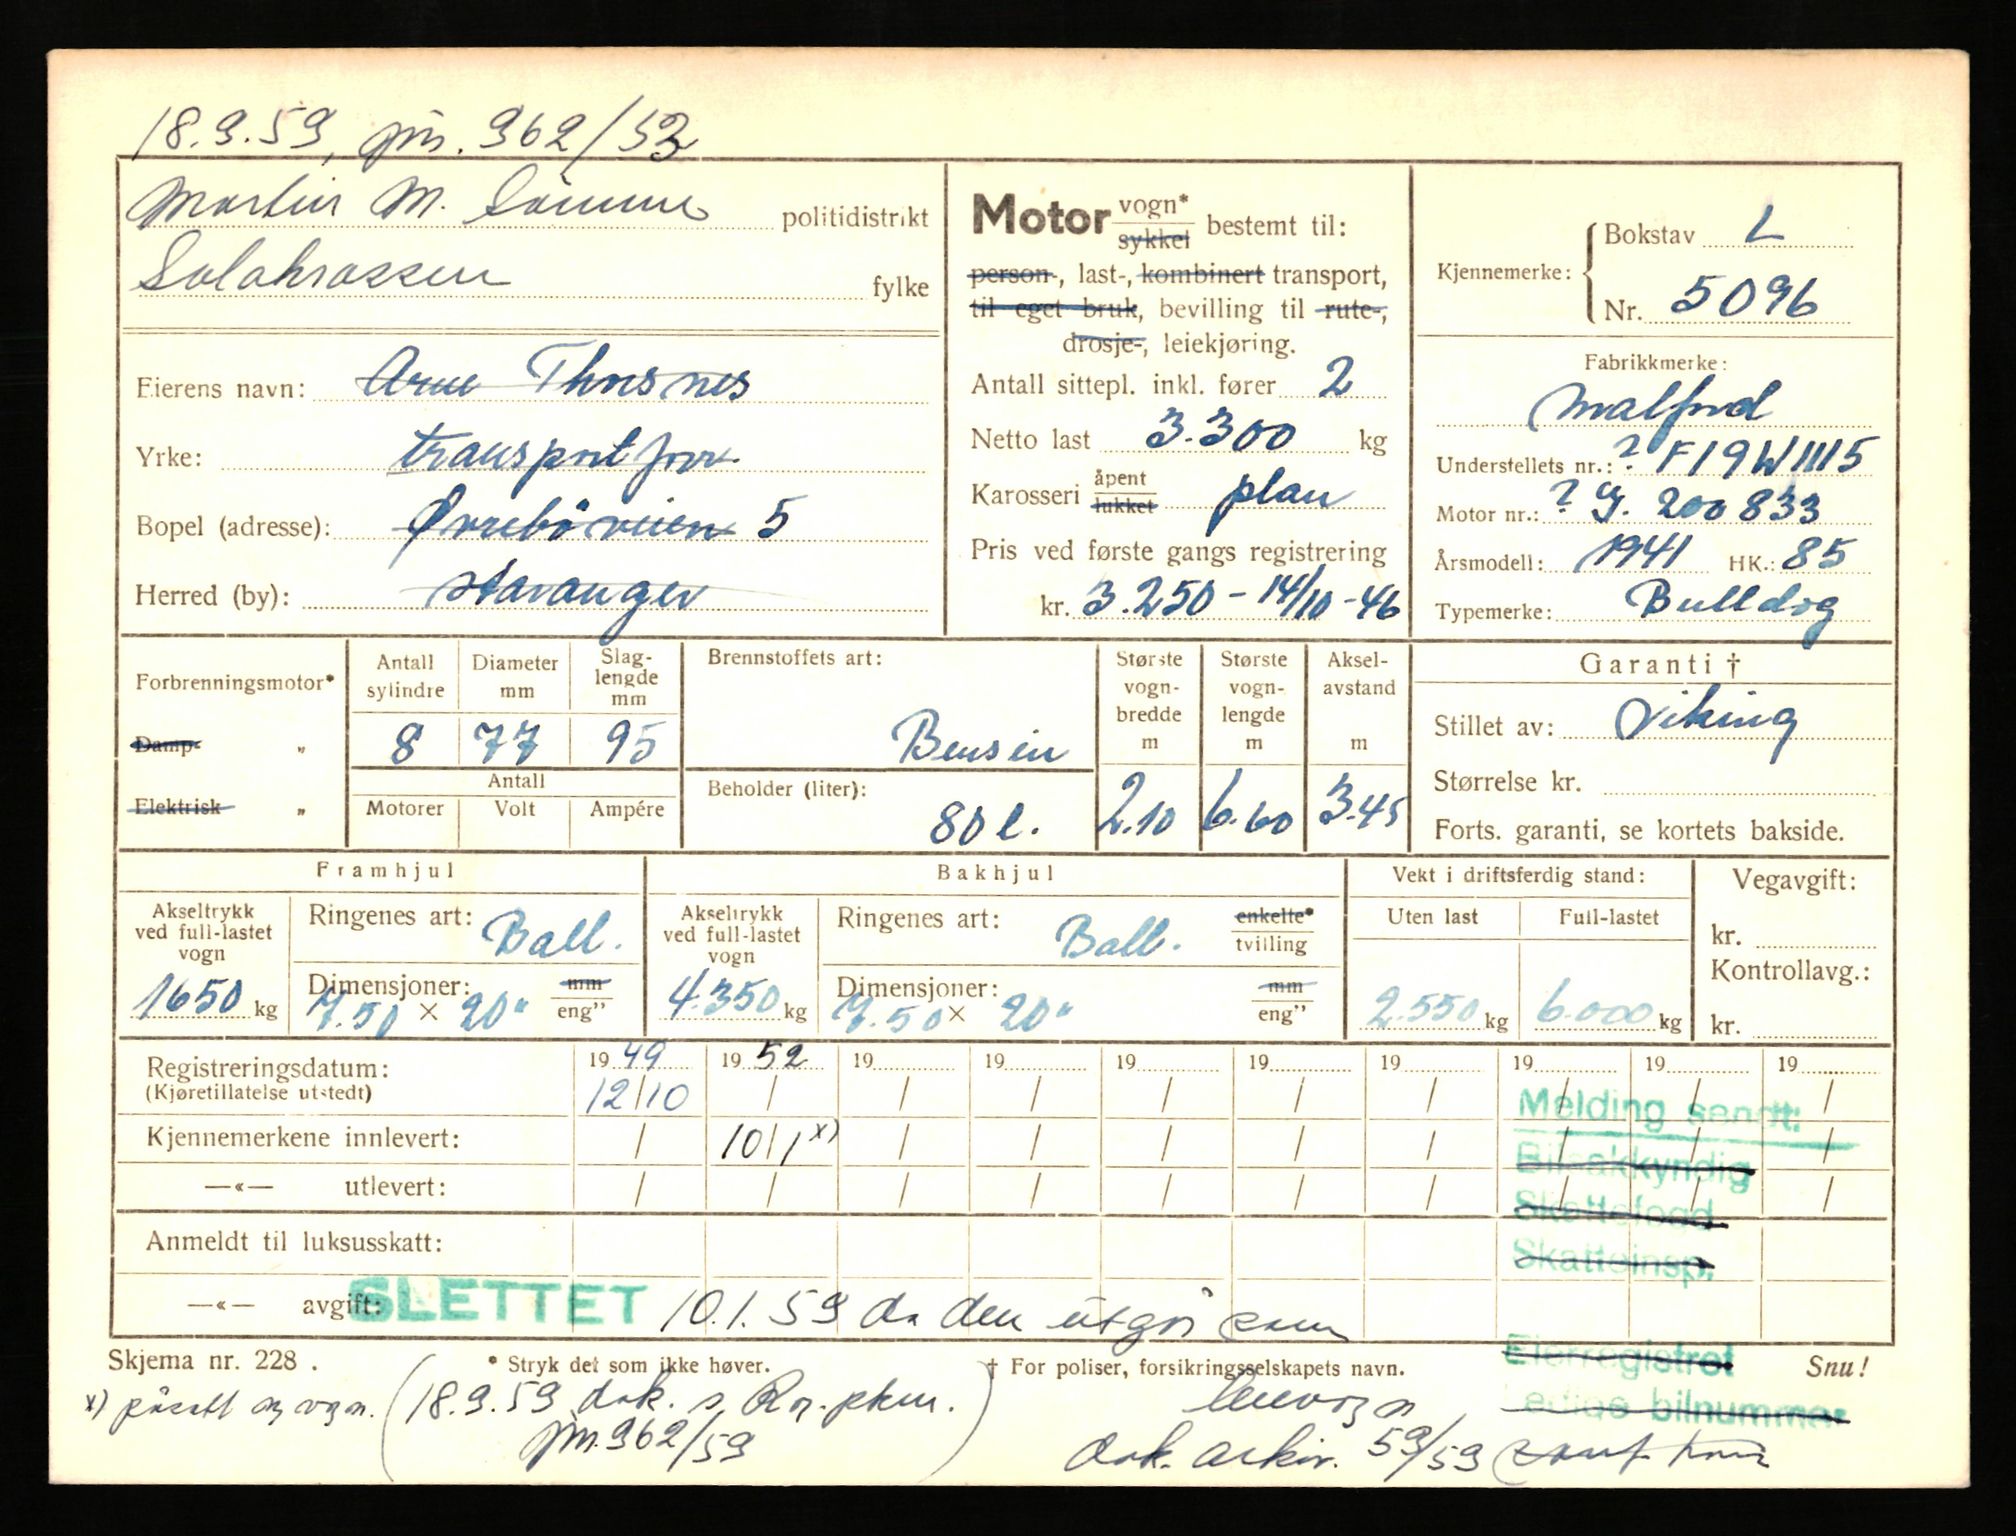 18.9.59, jnr. 962/53
Martin M. Sömme politidistrikt
Solakrossen fylke
Eierens navn: Arne Thosnes
Yrke: transportforr.
Bopel (adresse): Øvrebö veien 5
Herred (by): Stavanger
Motor vogn* sykkel bestemt til:
person-, last-, kombinert transport,
til eget bruk, bevilling til rute-,
drosje-, leiekjøring.
Antall sittepl. inkl. fører 2
Netto last 3.300 kg
Karosseri åpent lukket plan
Pris ved første gangs registrering
kr. 3.250 - 14/10 - 46
Kjennemerke: Bokstav L
Nr. 5096
Fabrikkmerke:
Malford
Understellets nr.: ? F19W1115
Motor nr.: ? G. 200833
Årsmodell: 1941 HK.: 85
Typemerke: Bulldog
Forbrenningsmotor*
Damp- „
Elektrisk „
Antall sylindre Diameter mm Slag-lengde mm
8 77 95
Antall
Motorer Volt Ampére
Brennstoffets art:
Bensin
Beholder (liter):
80 l.
Største vogn-bredde m
2.10
Største vogn-lengde m
6.60
Aksel-avstand m
3.45
Garanti †
Stillet av: Viking
Størrelse kr.
Forts. garanti, se kortets bakside.
Framhjul
Akseltrykk ved full-lastet vogn
1650 kg
Ringenes art: Ball.
Dimensjoner: mm
7.50 × 20" eng"
Bakhjul
Akseltrykk ved full-lastet vogn
4.350 kg
Ringenes art: Ball. enkelte* tvilling
Dimensjoner: mm
7.50 × 20" eng"
Vekt i driftsferdig stand:
Uten last Full-lastet
2.550 kg 6.000 kg
Vegavgift:
kr.
Kontrollavg.:
kr.
Registreringsdatum: 19 49 19 52 19 19 19 19 19 19 19 19
(Kjøretillatelse utstedt) 12/10 / / / / / / / / /
Kjennemerkene innlevert: / 10/1 x) / / / / / / / /
—«— utlevert: / / / / / / / / / /
Anmeldt til luksusskatt:
—«— avgift:
Melding sendt:
Bilsakkyndig
Skattefogd
Skatteinsp.
Eierregistret
Ledige bilnummer
SLETTET 10.1.59 da den utgår som
Skjema nr. 228 . * Stryk det som ikke høver. † For poliser, forsikringsselskapets navn. Snu!
leievogn
x) påsatt ny vgn. (18.9.59 dok. s. Rog. pkm.
jnr. 962/59)
dok. arkiv. 59/59